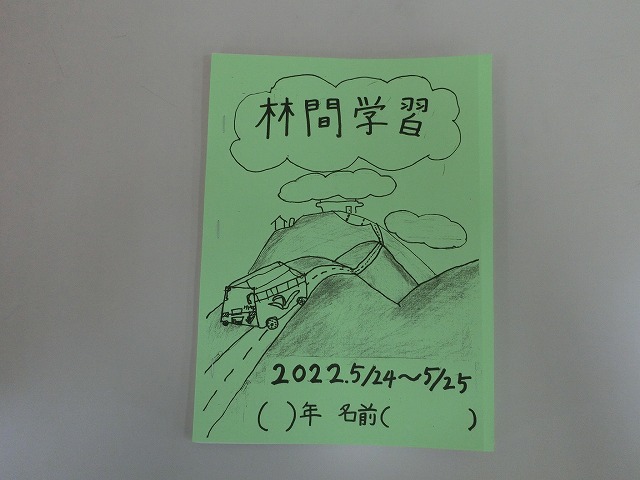 林間学習
2022.5/24～5/25
(　)年 名前(　　　)